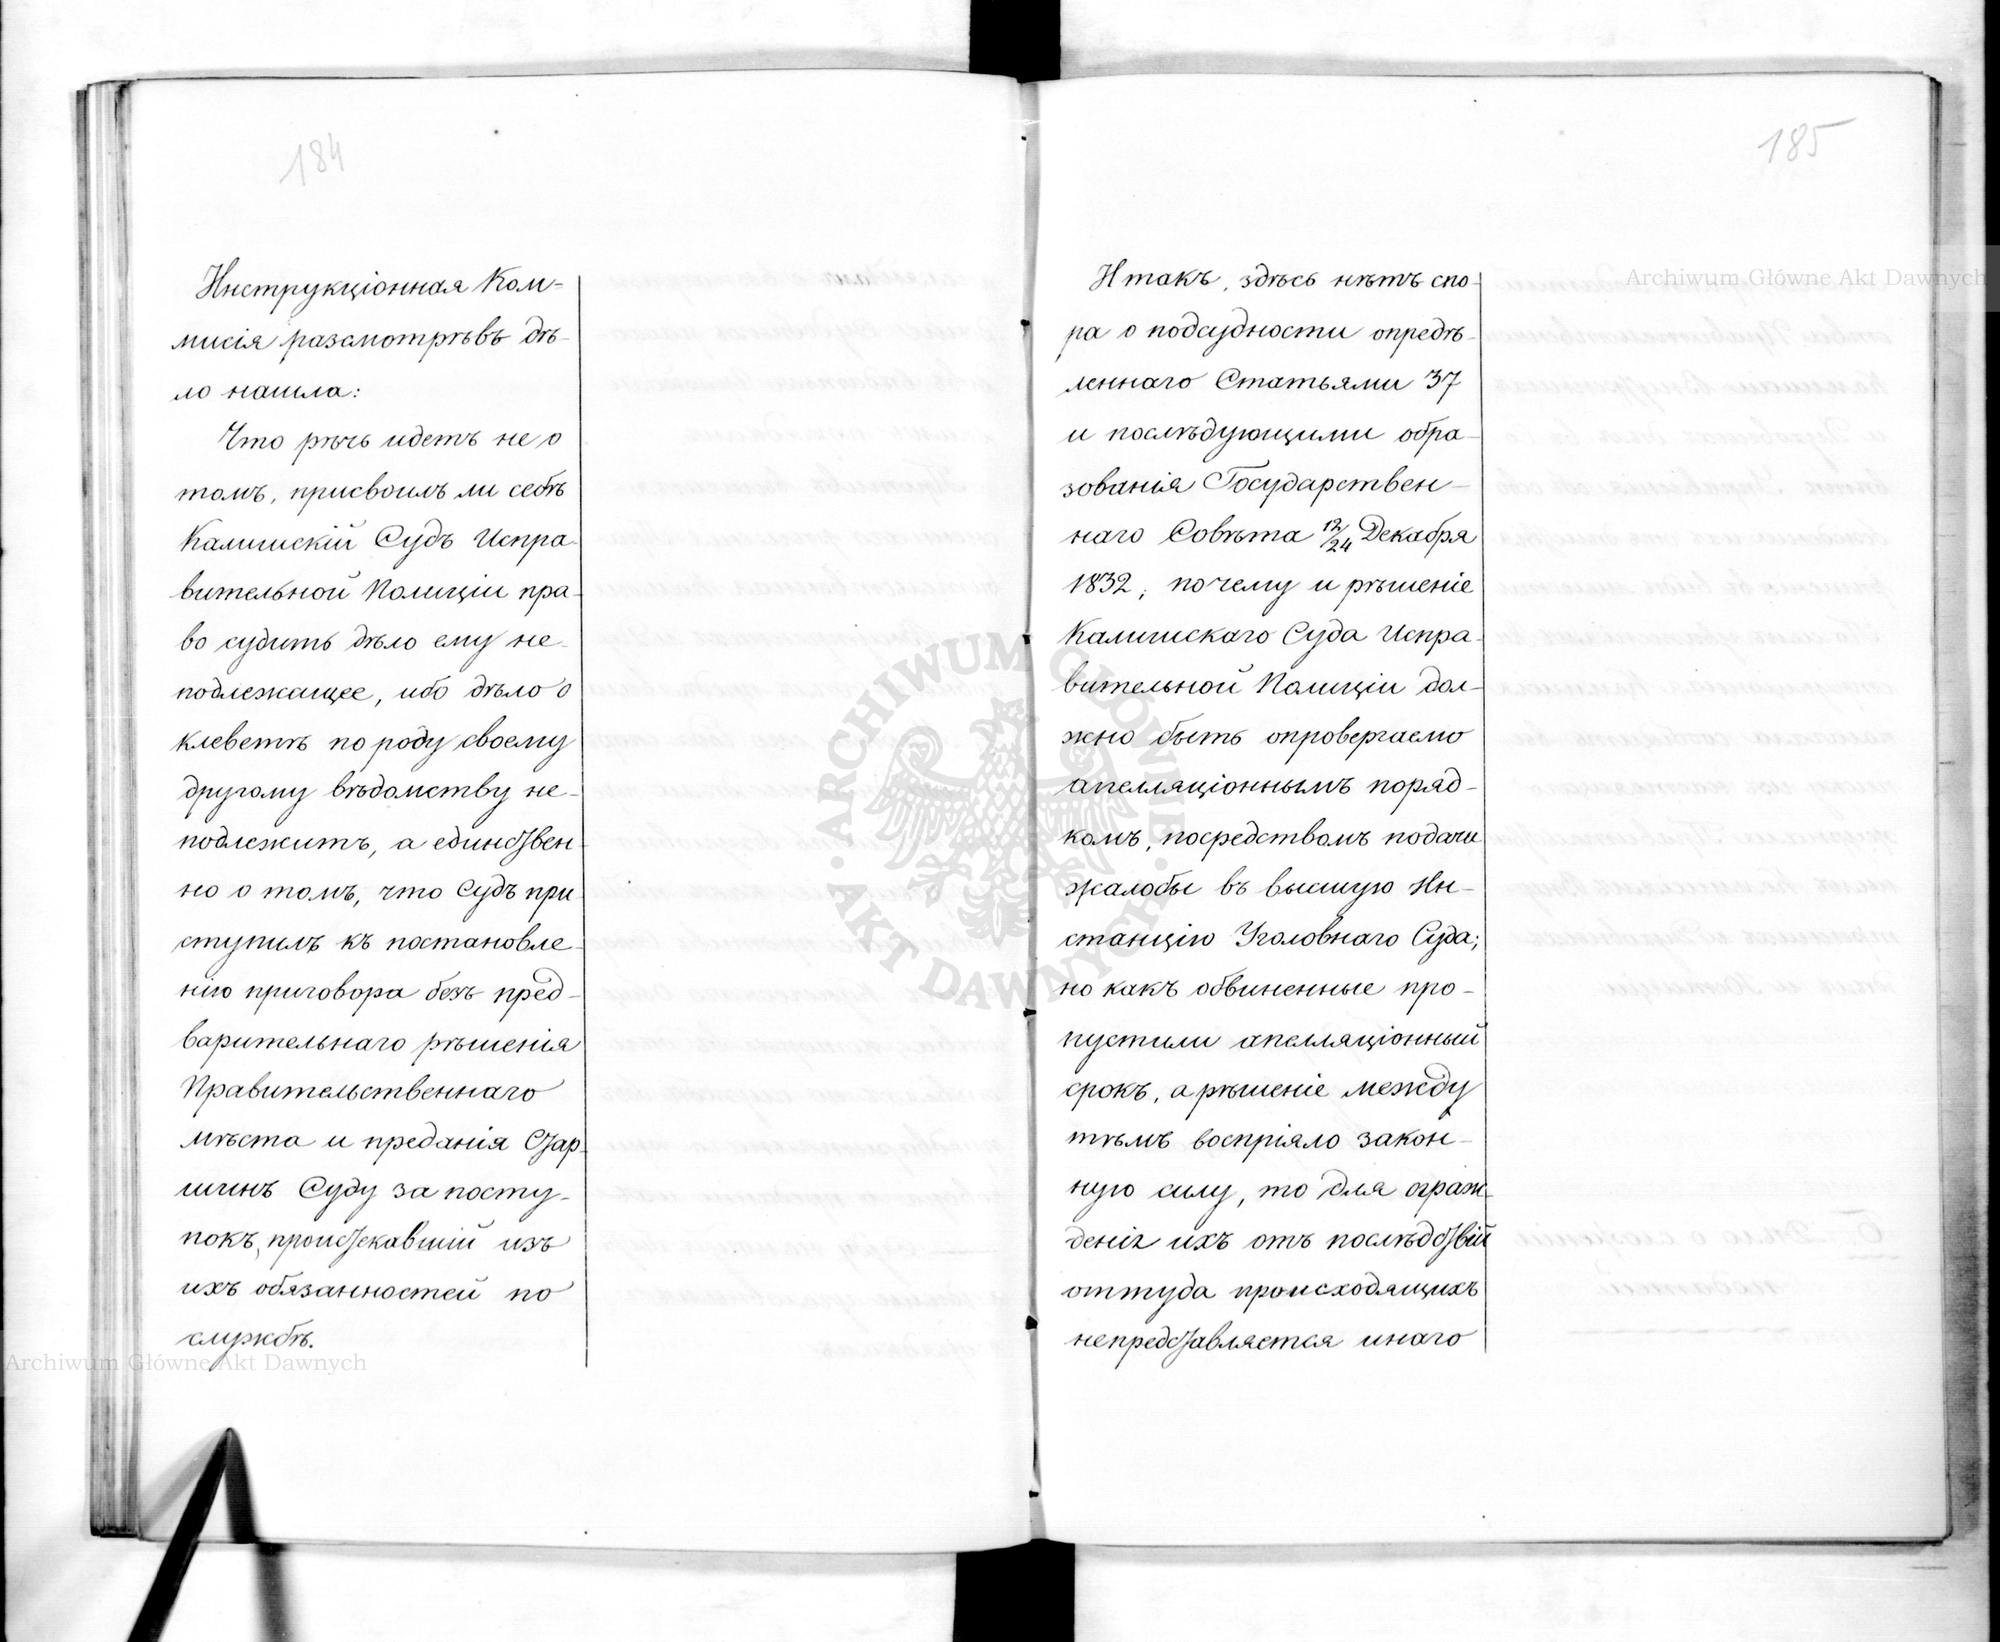 184
Инструкціонная Ком-
мисія разсмотрѣвъ дѣ-
ло нашла:
Что рѣчь идетъ не о
томъ, присвоилъ ли себѣ
Калишскій Судъ Испра-
вительной Полиціи пра-
во судить дѣло ему не-
подлежащее, ибо дѣло о
клеветѣ по роду своему
другому вѣдомству не-
подлежитъ, а единствен-
но о томъ, что Судъ при
ступилъ къ постановле-
нію приговора безъ пред-
варительнаго рѣшенія
Правительственнаго
мѣста и преданія Стар-
шинъ Суду за посту-
покъ, проистекавшій изъ
ихъ обязанностей по
службѣ.
185
Итакъ, здѣсь нѣтъ спо-
ра о подсудности опредѣ-
леннаго Статьями 37
и послѣдующими обра-
зованія Государствен-
наго Совѣта 12/24 Декабря
1832, почему и рѣшеніе
Калишскаго Суда Испра-
вительной Полиціи дол-
жно быть опровергаемо
апелляціоннымъ поряд-
комъ, посредствомъ подачи
жалобы въ высшую Ин-
станцію Уголовнаго Суда;
но какъ обвиненные про-
пустили апелляціонный
срокъ, а рѣшеніе между
тѣмъ воспріяло закон-
ную силу, то для ограж-
денія ихъ отъ послѣдствій
оттуда происходящихъ
непредставляется инаго
Archiwum Główne Akt Dawnych
Archiwum Główne Akt Dawnych
ARCHIWUM GŁÓWNE AKT DAWNYCH